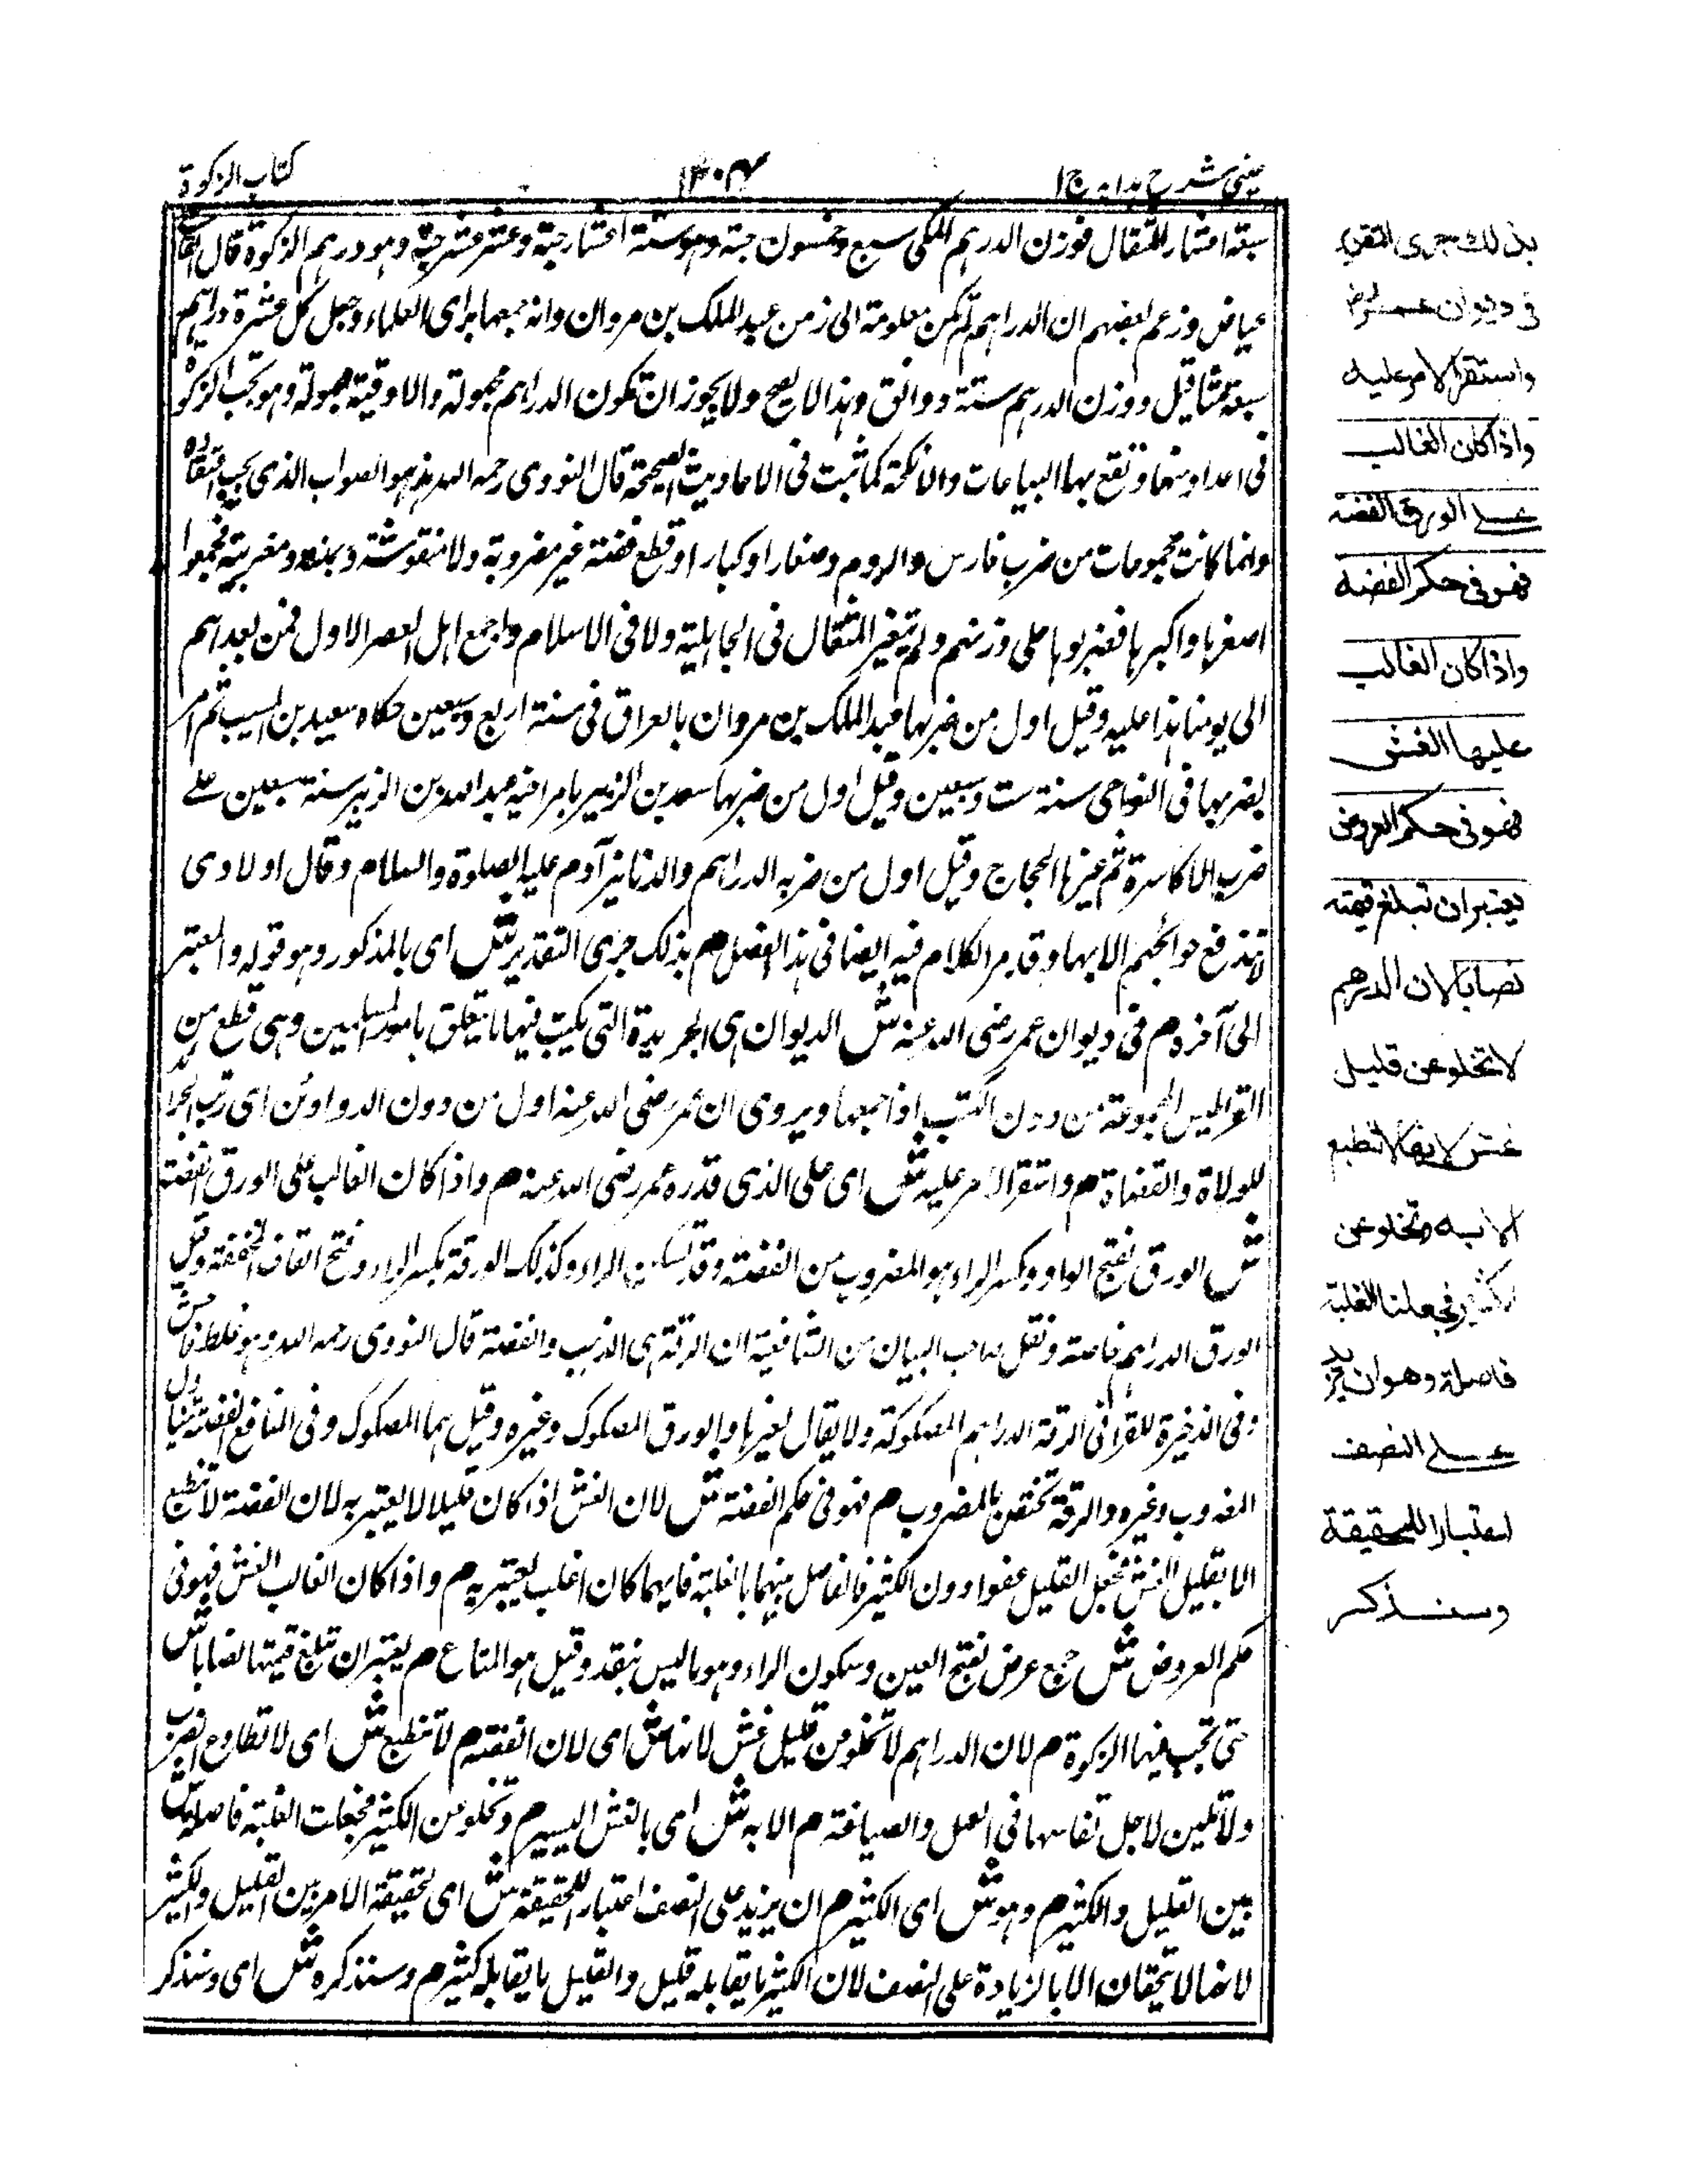 عینی شرح ہدایہ ج ا
۱۳۰۴
کتاب الزکوة
سبعة اعشار المثقال فوزن الدرهم المكى سبع وخمسون حبة وهو ستة اعشار حبة وعشر عشر حبة وهو درهم الزكوة قال القاضى
عياض وزعم بعضهم ان الدراهم لم تكن معلومة الى زمن عبد الملك بن مروان وانه جمعها براى العلماء وجعل كل عشرة دراهم
سبعة مثاقيل ووزن الدرهم ستة دوانق وهذا لا يصح ولا يجوز ان تكون الدراهم مجهولة والاوقية مجهولة وهو يجب الزكوة
فى اعداد منها وتقع بها البياعات والانكحة كما ثبت فى الاحاديث الصحيحة قال النووى رحمه الله هذا هو الصواب الذى يجب اعتقاده
وانما كانت مجموعات من ضرب فارس والروم وصغارا وكبارا وقطع فضة غير مضروبة ولا منقوشة ويمنية ومغربية فجمعوا
اصغرها واكبرها فضربوها على وزنهم ولم يتغير المثقال فى الجاهلية ولا فى الاسلام واجمع اهل العصر الاول فمن بعدهم
الى يومنا هذا عليه وقيل اول من ضربها عبد الملك بن مروان بالعراق فى سنة اربع وسبعين حكاه سعيد بن المسيب ثم امر
بضربها فى النواحى سنة ست وسبعين وقيل اول من ضربها سعد بن الزبير بامر اخيه عبد الله بن الزبير سنة سبعين على
ضرب الاكاسرة ثم غيرها الحجاج وقيل اول من ضربه الدراهم والدنانير آدم عليه الصلوة والسلام وقال اولادى
لا تندفع حوائجهم الا بها وقد مر الكلام فيه ايضا فى هذا الفصل م بذلك جرى التقدير ش اى بالمذكور وهو قوله والمعتبر
الى آخره م فى ديوان عمر رضى الله عنه ش الديوان هى الجريدة التى يكتب فيها ما يتعلق بامور المسلمين وهى قطع من
القراطيس المجموعة من دون الكتب اذا جمعها ويروى ان عمر رضى الله عنه اول من دون الدواوين اى رتب الجرائد
للولاة والقضاة م واستقر الامر عليه ش اى على الذى قدره عمر رضى الله عنه م واذا كان الغالب على الورق الفضة
ش الورق بفتح الواو وبكسر الراء هو المضروب من الفضة وقد تسكن الراء وكذلك الورقة بكسر الراء وفتح القاف المخففة وقيل
الورق الدراهم خاصة ونقل صاحب البيان من الشافعية ان الرقة هى الذهب والفضة قال النووى رحمه الله وهو غلط فاحش
وفى الذخيرة للقرافى الرقة الدراهم المسكوكة ولا يقال لغيرها والورق المسكوك وغيره وقيل هما المسكوك وفى المنافع الفضة يتناول
المضروب وغيره والرقة تختص بالمضروب م فهو فى حكم الفضة ش لان الغش اذا كان قليلا لا يعتبر به لان الفضة لا تنطبع
الا بقليل الغش فجعل القليل عفوا دون الكثير فالفاصل بينهما بالغلبة فايهما كان اغلب يعتبر به م واذا كان الغالب الغش فهو فى
حكم العروض ش جمع عرض بفتح العين وسكون الراء وهو ما ليس بنقد وقيل هو المتاع م يعتبر ان تبلغ قيمتها نصابا ش
حتى تجب فيها الزكوة م لان الدراهم لا تخلو من قليل غش لانها ش اى لان الفضة م لا تنطبع ش اى لا تطاوع الضرب
ولا تلين لاجل تفاسها فى العمل والصياغة م الا به ش اى بالغش اليسير م وتخلو من الكثير فجعلت الغلبة فاصلة ش
بين القليل والكثير م وهو ش اى الكثير م ان يزيد على النصف اعتبار للحقيقة ش اى لحقيقة الامر بين القليل والكثير
لانهما لا يتحققان الا بالزيادة على النصف لان الكثير ما يقابله قليل والقليل ما يقابله كثير م وسنذكره ش اى وسنذكر
بذلك جرى التقدير
فى ديوان عمر رض
واستقر الامر عليه
واذا كان الغالب
على الورق الفضة
فهو فى حكم الفضة
واذا كان الغالب
عليها الغش
فهو فى حكم العروض
يعتبر ان تبلغ قيمته
نصابا لان الدرهم
لا تخلو عن قليل
غش لانها لا تنطبع
الا به وتخلو عن
الكثير فجعلنا الغلبة
فاصلة وهو ان يزيد
على النصف
اعتبارا للحقيقة
وسنذكر